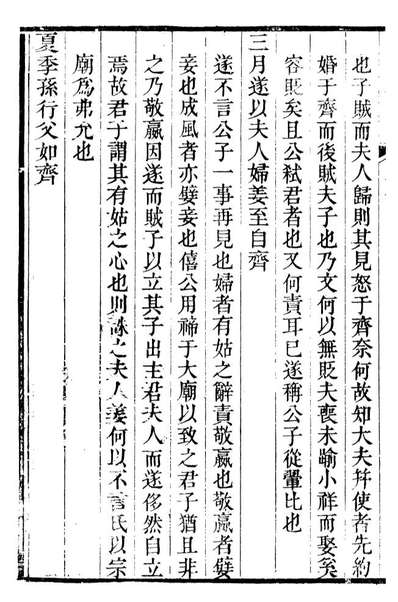 也子賊而夫人歸則其見怒于齊奈何故知大夫幷使者先約
婚于齊而後賊夫子也乃文何以無貶夫喪未踰小祥而娶矣
容貶矣且公弒君者也又何責耳已遂稱公子從翬比也
三月遂以夫人婦姜至自齊
遂不言公子一事再見也婦者有姑之辭責敬嬴也敬嬴者嬖
妾也成風者亦嬖妾也僖公用禘于大廟以致之君子猶且非
之乃敬嬴因遂而賊子以立其子出主君夫人而遂侈然自立
焉故君子謂其有姑之心也則誅之夫人姜何以不言氏以宗
廟為弗允也
夏季孫行父如齊